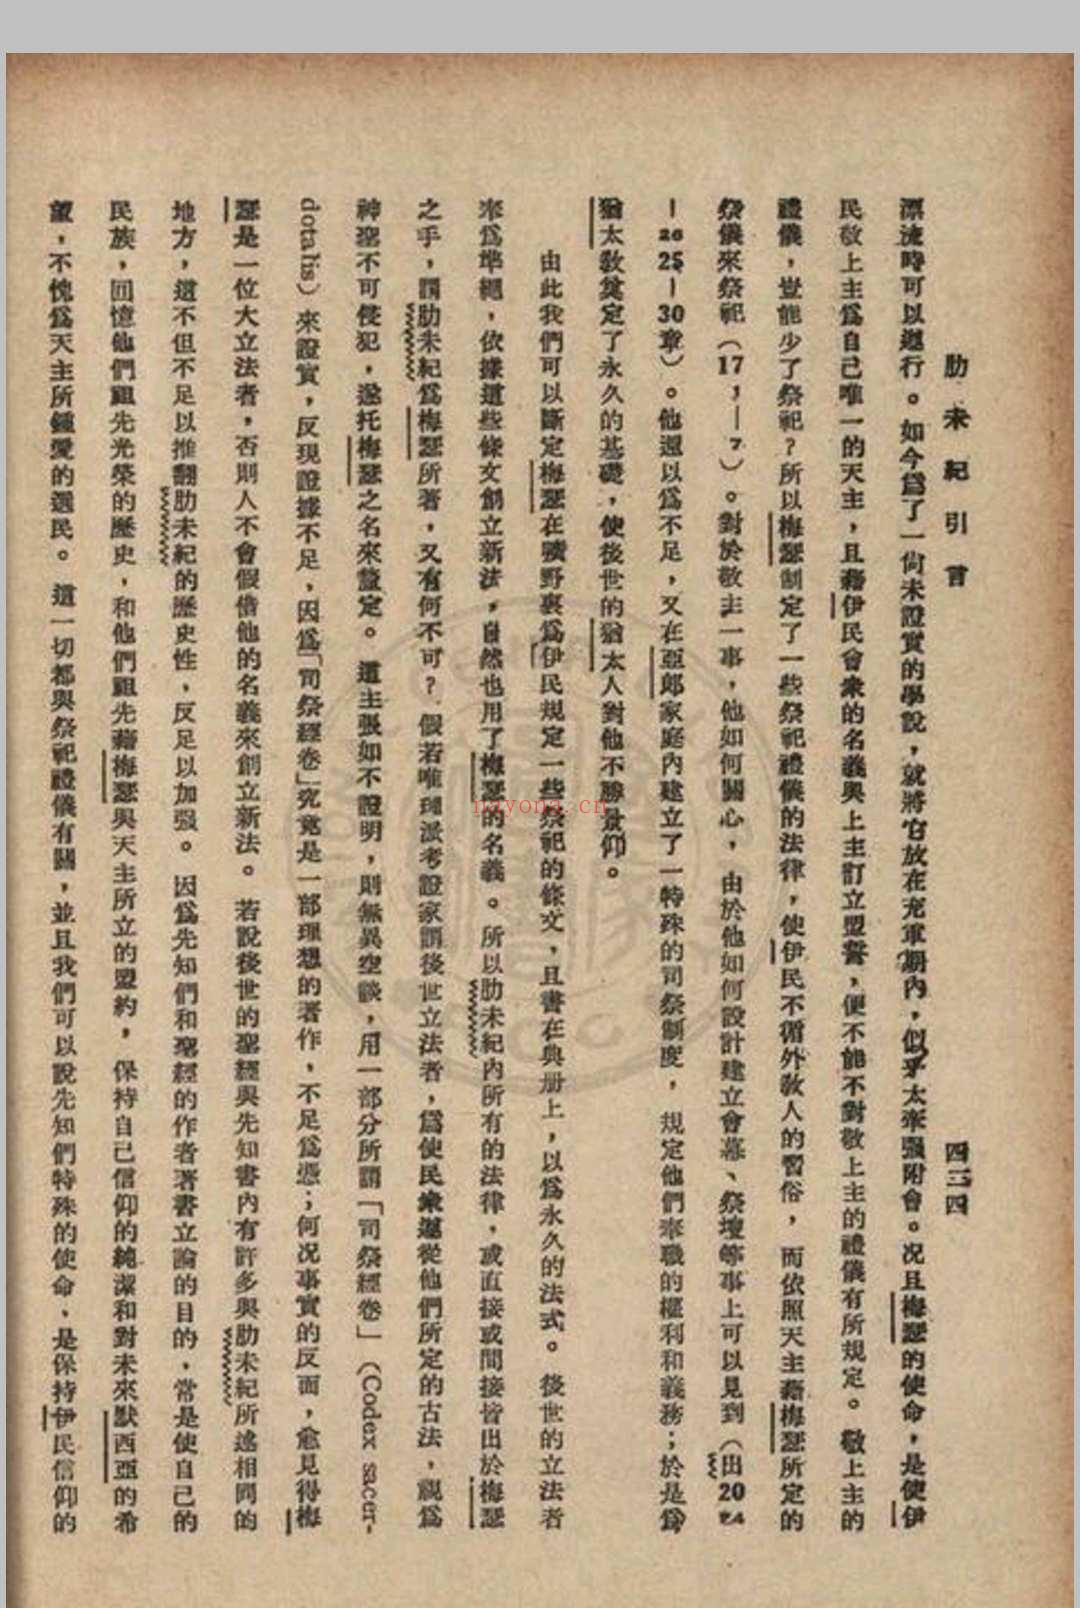 肋未紀引言
四三四
漂流時可以遵行。如今爲了一尙未證實的學說，就將它放在充軍期內，似乎太牽强附會。况且梅瑟的使命，是使伊
民敬上主爲自己唯一的天主，且藉伊民會衆的名義與上主訂立盟誓，便不能不對敬上主的禮儀有所規定。敬上主的
禮儀，豈能少了祭祀？所以梅瑟制定了一些祭祀禮儀的法律，使伊民不循外敎人的習俗，而依照天主藉梅瑟所定的
祭儀來祭祀（17，—7）。對於敬主一事，他如何關心，由於他如何設計建立會幕、祭壇等事上可以見到（出20 24
—26 25—30章）。他還以爲不足，又在亞郎家庭內建立了一特殊的司祭制度，規定他們奉職的權利和義務；於是爲
猶太敎奠定了永久的基礎，使後世的猶太人對他不勝景仰。
由此我們可以斷定梅瑟在曠野裏爲伊民規定一些祭祀的條文，且書在典册上，以爲永久的法式。後世的立法者
來爲準繩，依據這些條文創立新法，自然也用了梅瑟的名義。所以肋未紀內所有的法律，或直接或間接皆出於梅瑟
之手，謂肋未紀爲梅瑟所著，又有何不可？假若唯理派考證家謂後世立法者，爲使民衆遵從他們所定的古法，視爲
神聖不可侵犯，遂托梅瑟之名來擬定。這主張如不證明，則無異空談，用一部分所謂「司祭經卷」（Codex sacer-
dotalis）來證實，反現證據不足，因爲「司祭經卷」究竟是一部理想的著作，不足爲憑；何况事實的反面，愈見得梅
瑟是一位大立法者，否則人不會假借他的名義來創立新法。若說後世的聖經與先知書內有許多與肋未紀所述相同的
地方，這不但不足以推翻肋未紀的歷史性，反足以加强。因爲先知們和聖經的作者著書立論的目的，常是使自己的
民族，回憶他們祖先光榮的歷史，和他們祖先藉梅瑟與天主所立的盟約，保持自己信仰的純潔和對未來默西亞的希
望，不愧爲天主所鍾愛的選民。這一切都與祭祀禮儀有關，並且我們可以說先知們特殊的使命，是保持伊民信仰的
nayona.cn